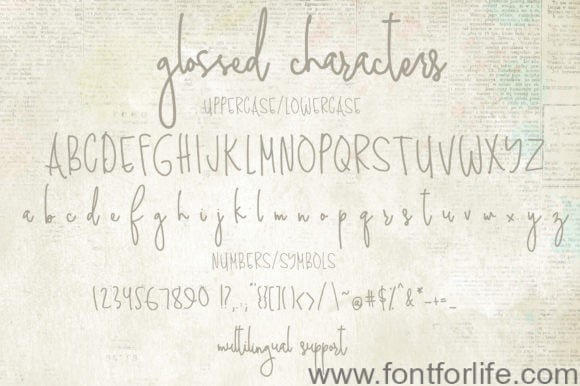 glossed characters
UPPERCASE/LOWERCASE
ABCDEFGHIJKLMNOPQRSTUVWXYZ
a b c d e f g h i j k l m n o p q r s t u v w x y z
NUMBERS/SYMBOLS
1234567890 !?,.:;¨{}[]()<>/|\~@#$%^&*-+=_
multilingual support
www.fontforlife.com